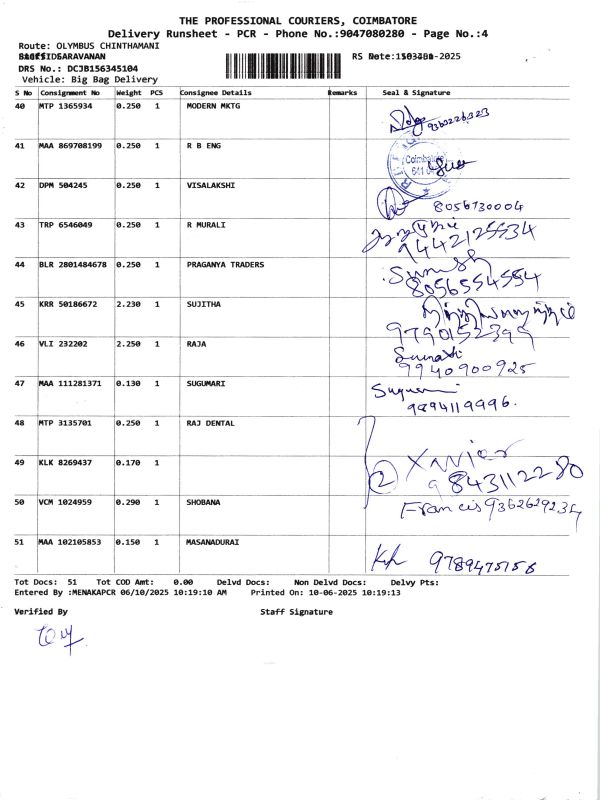 THE PROFESSIONAL COURIERS, COIMBATORE
Delivery Runsheet - PCR - Phone No.:9047080280 - Page No.:4
Route: OLYMBUS CHINTHAMANI
SARAVANAN
RS Date: -2025
DRS No.: DCJB156345104
Vehicle: Big Bag Delivery
S No Consignment No Weight PCS Consignee Details Remarks Seal & Signature
40 MTP 1365934 0.250 1 MODERN MKTG
41 MAA 869708199 0.250 1 R B ENG
Coimbatore
42 DPM 504245 0.250 1 VISALAKSHI
8056730004
43 TRP 6546049 0.250 1 R MURALI
44 BLR 2801484678 0.250 1 PRAGANYA TRADERS
8056554554
45 KRR 50186672 2.230 1 SUJITHA
9790152399
46 VLI 232202 2.250 1 RAJA
9940900925
47 MAA 111281371 0.130 1 SUGUMARI
9894119996.
48 MTP 3135701 0.250 1 RAJ DENTAL
49 KLK 8269437 0.170 1
2 Xavier
9843112280
50 VCM 1024959 0.290 1 SHOBANA
Francis 9362629234
51 MAA 102105853 0.150 1 MASANADURAI
9789475156
Tot Docs: 51 Tot COD Amt: 0.00 Delvd Docs: Non Delvd Docs: Delvy Pts:
Entered By :MENAKAPCR 06/10/2025 10:19:10 AM Printed On: 10-06-2025 10:19:13
Verified By Staff Signature